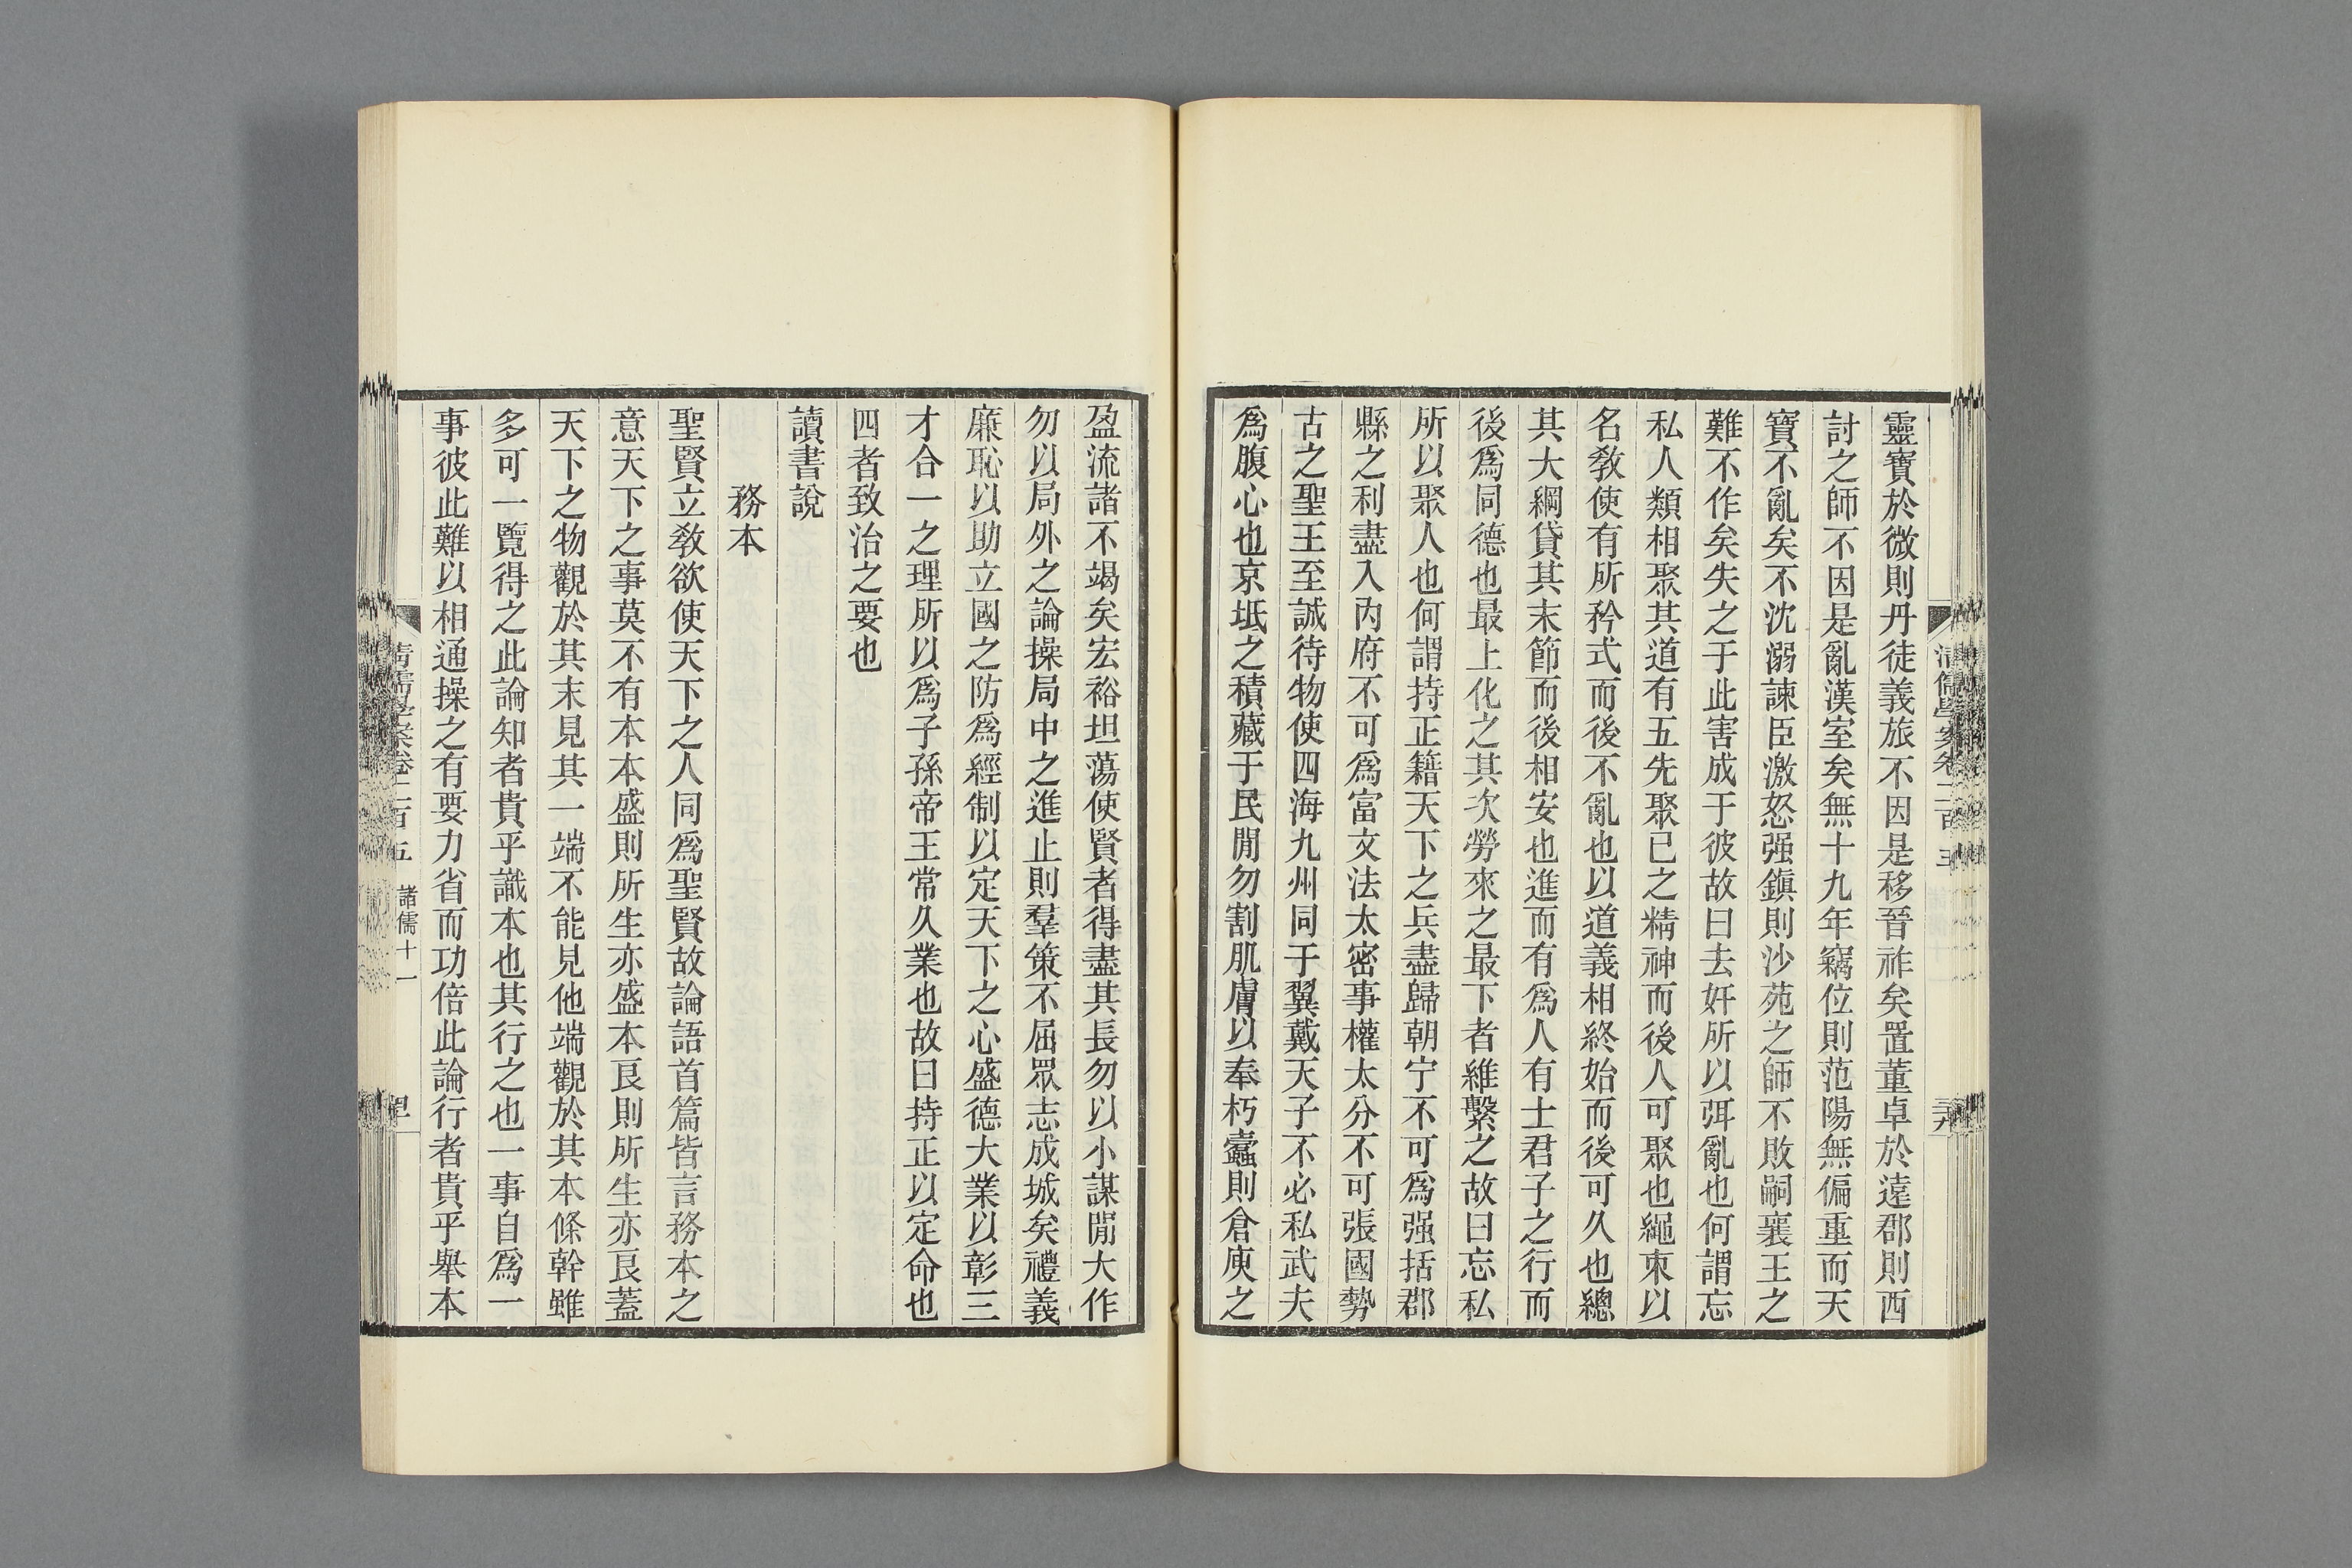 靈寶於微則丹徒義旅不因是移晉祚矣置董卓於遠郡則西
討之師不因是亂漢室矣無十九年竊位則范陽無偏重而天
寶不亂矣不沈溺諫臣激怒强鎮則沙苑之師不敗嗣襄王之
難不作矣失之于此害成于彼故曰去奸所以弭亂也何謂忘
私人類相聚其道有五先聚己之精神而後人可聚也繩束以
名教使有所矜式而後不亂也以道義相終始而後可久也總
其大綱貸其末節而後相安也進而有爲人有士君子之行而
後爲同德也最上化之其次勞來之最下者維繫之故曰忘私
所以聚人也何謂持正籍天下之兵盡歸朝宁不可爲强括郡
縣之利盡入內府不可爲富文法太密事權太分不可張國勢
古之聖王至誠待物使四海九州同于翼戴天子不必私武夫
爲腹心也京坻之積藏于民閒勿割肌膚以奉朽蠹則倉庾之
清儒學案卷二百五
三九
盈流諸不竭矣宏裕坦蕩使賢者得盡其長勿以小謀閒大作
勿以局外之論操局中之進止則羣策不屈眾志成城矣禮義
廉恥以助立國之防爲經制以定天下之心盛德大業以彰三
才合一之理所以爲子孫帝王常久業也故曰持正以定命也
四者致治之要也
讀書說
務本
聖賢立敎欲使天下之人同爲聖賢故論語首篇皆言務本之
意天下之事莫不有本本盛則所生亦盛本良則所生亦良蓋
天下之物觀於其末見其一端不能見他端觀於其本條幹雖
多可一覽得之此論知者貴乎識本也其行之也一事自爲一
事彼此難以相通操之有要力省而功倍此論行者貴乎舉本
清儒學案卷二百五 諸儒十一